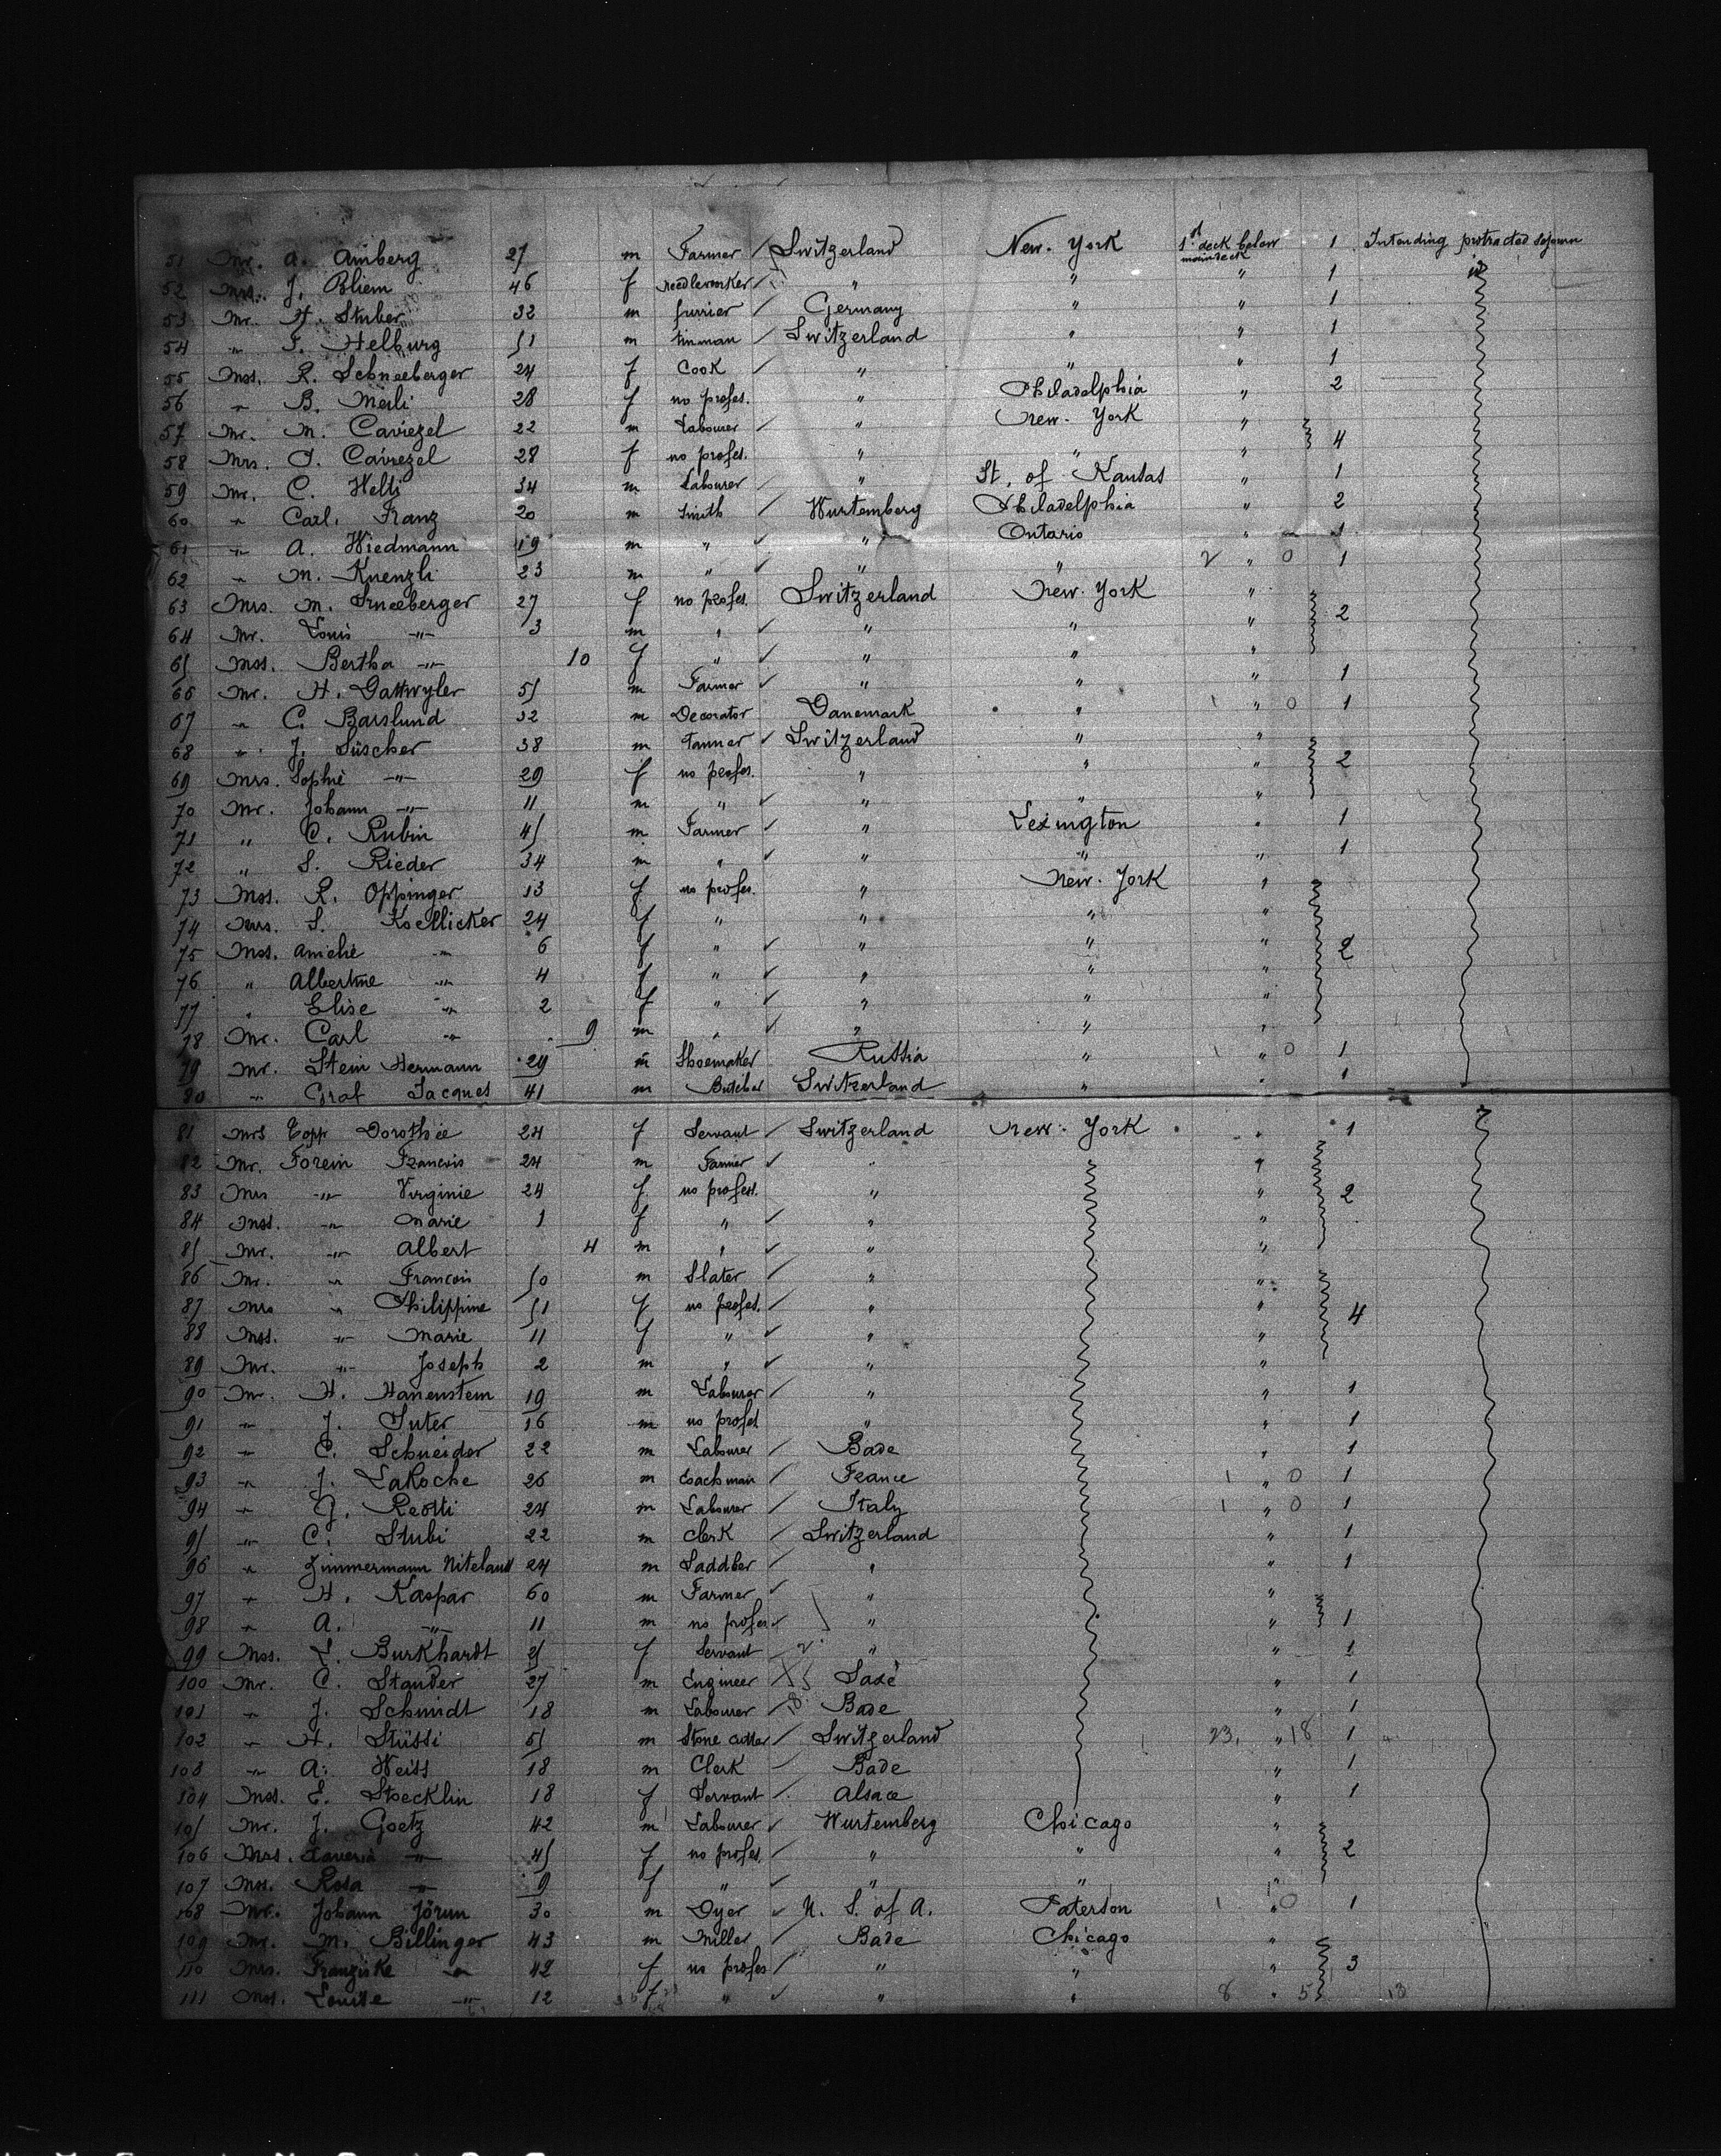 51 Mr. A. Amberg 27 m Farmer Switzerland New. York 1st deck below maindeck 1 Intending protracted sojourn
52 Mrs. J. Bliem 46 f needleworker " " " 1
53 Mr. H. Stuber 32 m furrier Germany " " 1
54 " F. Helburg 51 m tinman Switzerland " " 1
55 Mss. R. Schneeberger 24 f Cook " " " 1
56 " B. Merli 28 f no profes. " Philadelphia " 2
57 Mr. M. Caviezel 22 m Labourer " New. York "
58 Mrs. O. Caviezel 28 f no profes. " " " 4
59 Mr. C. Helti 34 m Labourer " St. of Kansas " 1
60 " Carl. Franz 20 m Smith Wurtemberg Philadelphia " 2
61 " A. Wiedmann 19 m " " Ontario " 1
62 " M. Kuenzli 23 m " " " 2 " 0 1
63 Mrs. M. Srneeberger 27 f no profes. Switzerland New. York "
64 Mr. Louis " 3 m " " " " 2
65 Mss. Bertha " 10 f " " " "
66 Mr. H. Dattwyler 55 m Farmer " " " 1
67 " C. Barslund 32 m Decorator Danemark " 1 " 0 1
68 " J. Lüscher 38 m Tanner Switzerland " "
69 Mrs. Sophie " 29 f no profes. " " " 2
70 Mr. Johann " 11 m " " " "
71 " C. Rubin 45 m Farmer " Lexington " 1
72 " S. Rieder 34 m " " " " 1
73 Mss. R. Oppinger 13 f no profes. " New. York "
74 Mrs. S. Koellicker 24 f " " " "
75 Mss. Amelie " 6 f " " " " 2
76 " Albertine " 4 f " " " "
77 " Elise " 2 f " " " "
78 Mr. Carl " 9 m " " " "
79 Mr. Stein Hermann 29 m Shoemaker Russia " 1 " 0 1
80 " Graf Jacques 41 m Butcher Switzerland " " 1
81 Mrs Topp Dorothée 24 f Servant Switzerland New. York " 1
82 Mr. Forein Francois 24 m Farmer " "
83 Mrs " Virginie 24 f no profess. " " 2
84 Mss. " Marie 1 f " " "
85 Mr. " Albert 4 m " " "
86 Mr. " Francois 50 m Slater " "
87 Mrs " Philippine 51 f no profes. " " 4
88 Mss. " Marie 11 f " " "
89 Mr. " Joseph 2 m " " "
90 Mr. H. Hanenstein 19 m Labourer " " 1
91 " J. Suter 16 m no profes " " 1
92 " C. Schneider 22 m Labourer Bade " 1
93 " J. LaRoche 26 m Coachman France 1 " 0 1
94 " G. Reotti 24 m Labourer Italy 1 " 0 1
95 " C. Stubi 22 m Clerk Switzerland " 1
96 " Zimmermann Niteland 24 m Saddler " " 1
97 " H. Kaspar 60 m Farmer " "
98 " A. " 11 m no profes " " 1
99 Mss. L. Burkhardt 25 f Servant " " 1
100 Mr. C. Stander 27 m Engineer Saxe " 1
101 " J. Schmidt 18 m Labourer 18 Bade " 1
102 " H. Stüssi 55 m Stone cutter Switzerland 23. " 18 1
103 " A. Weiss 18 m Clerk Bade " 1
104 Mss. E. Stoecklin 18 f Servant Alsace " 1
105 Mr. J. Goetz 42 m Labourer Wurtemberg Chicago "
106 Mrs. Xaveria " 45 f no profes. " " " 2
107 Mss. Rosa " 9 f " " " "
108 Mr. Johann Jörun 30 m Dyer U. S. of A. Paterson 1 " 0 1
109 Mr. M. Billinger 43 m Miller Bade Chicago "
110 Mrs. Franziske " 42 f no profes " " " 3
111 Mss. Louise " 12 f " " " 8 " 5 13